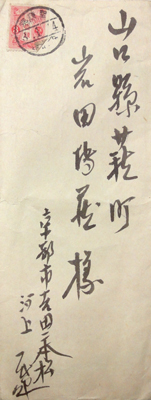 山口縣萩町
岩田博蔵様
京都市吉田二本松
河上